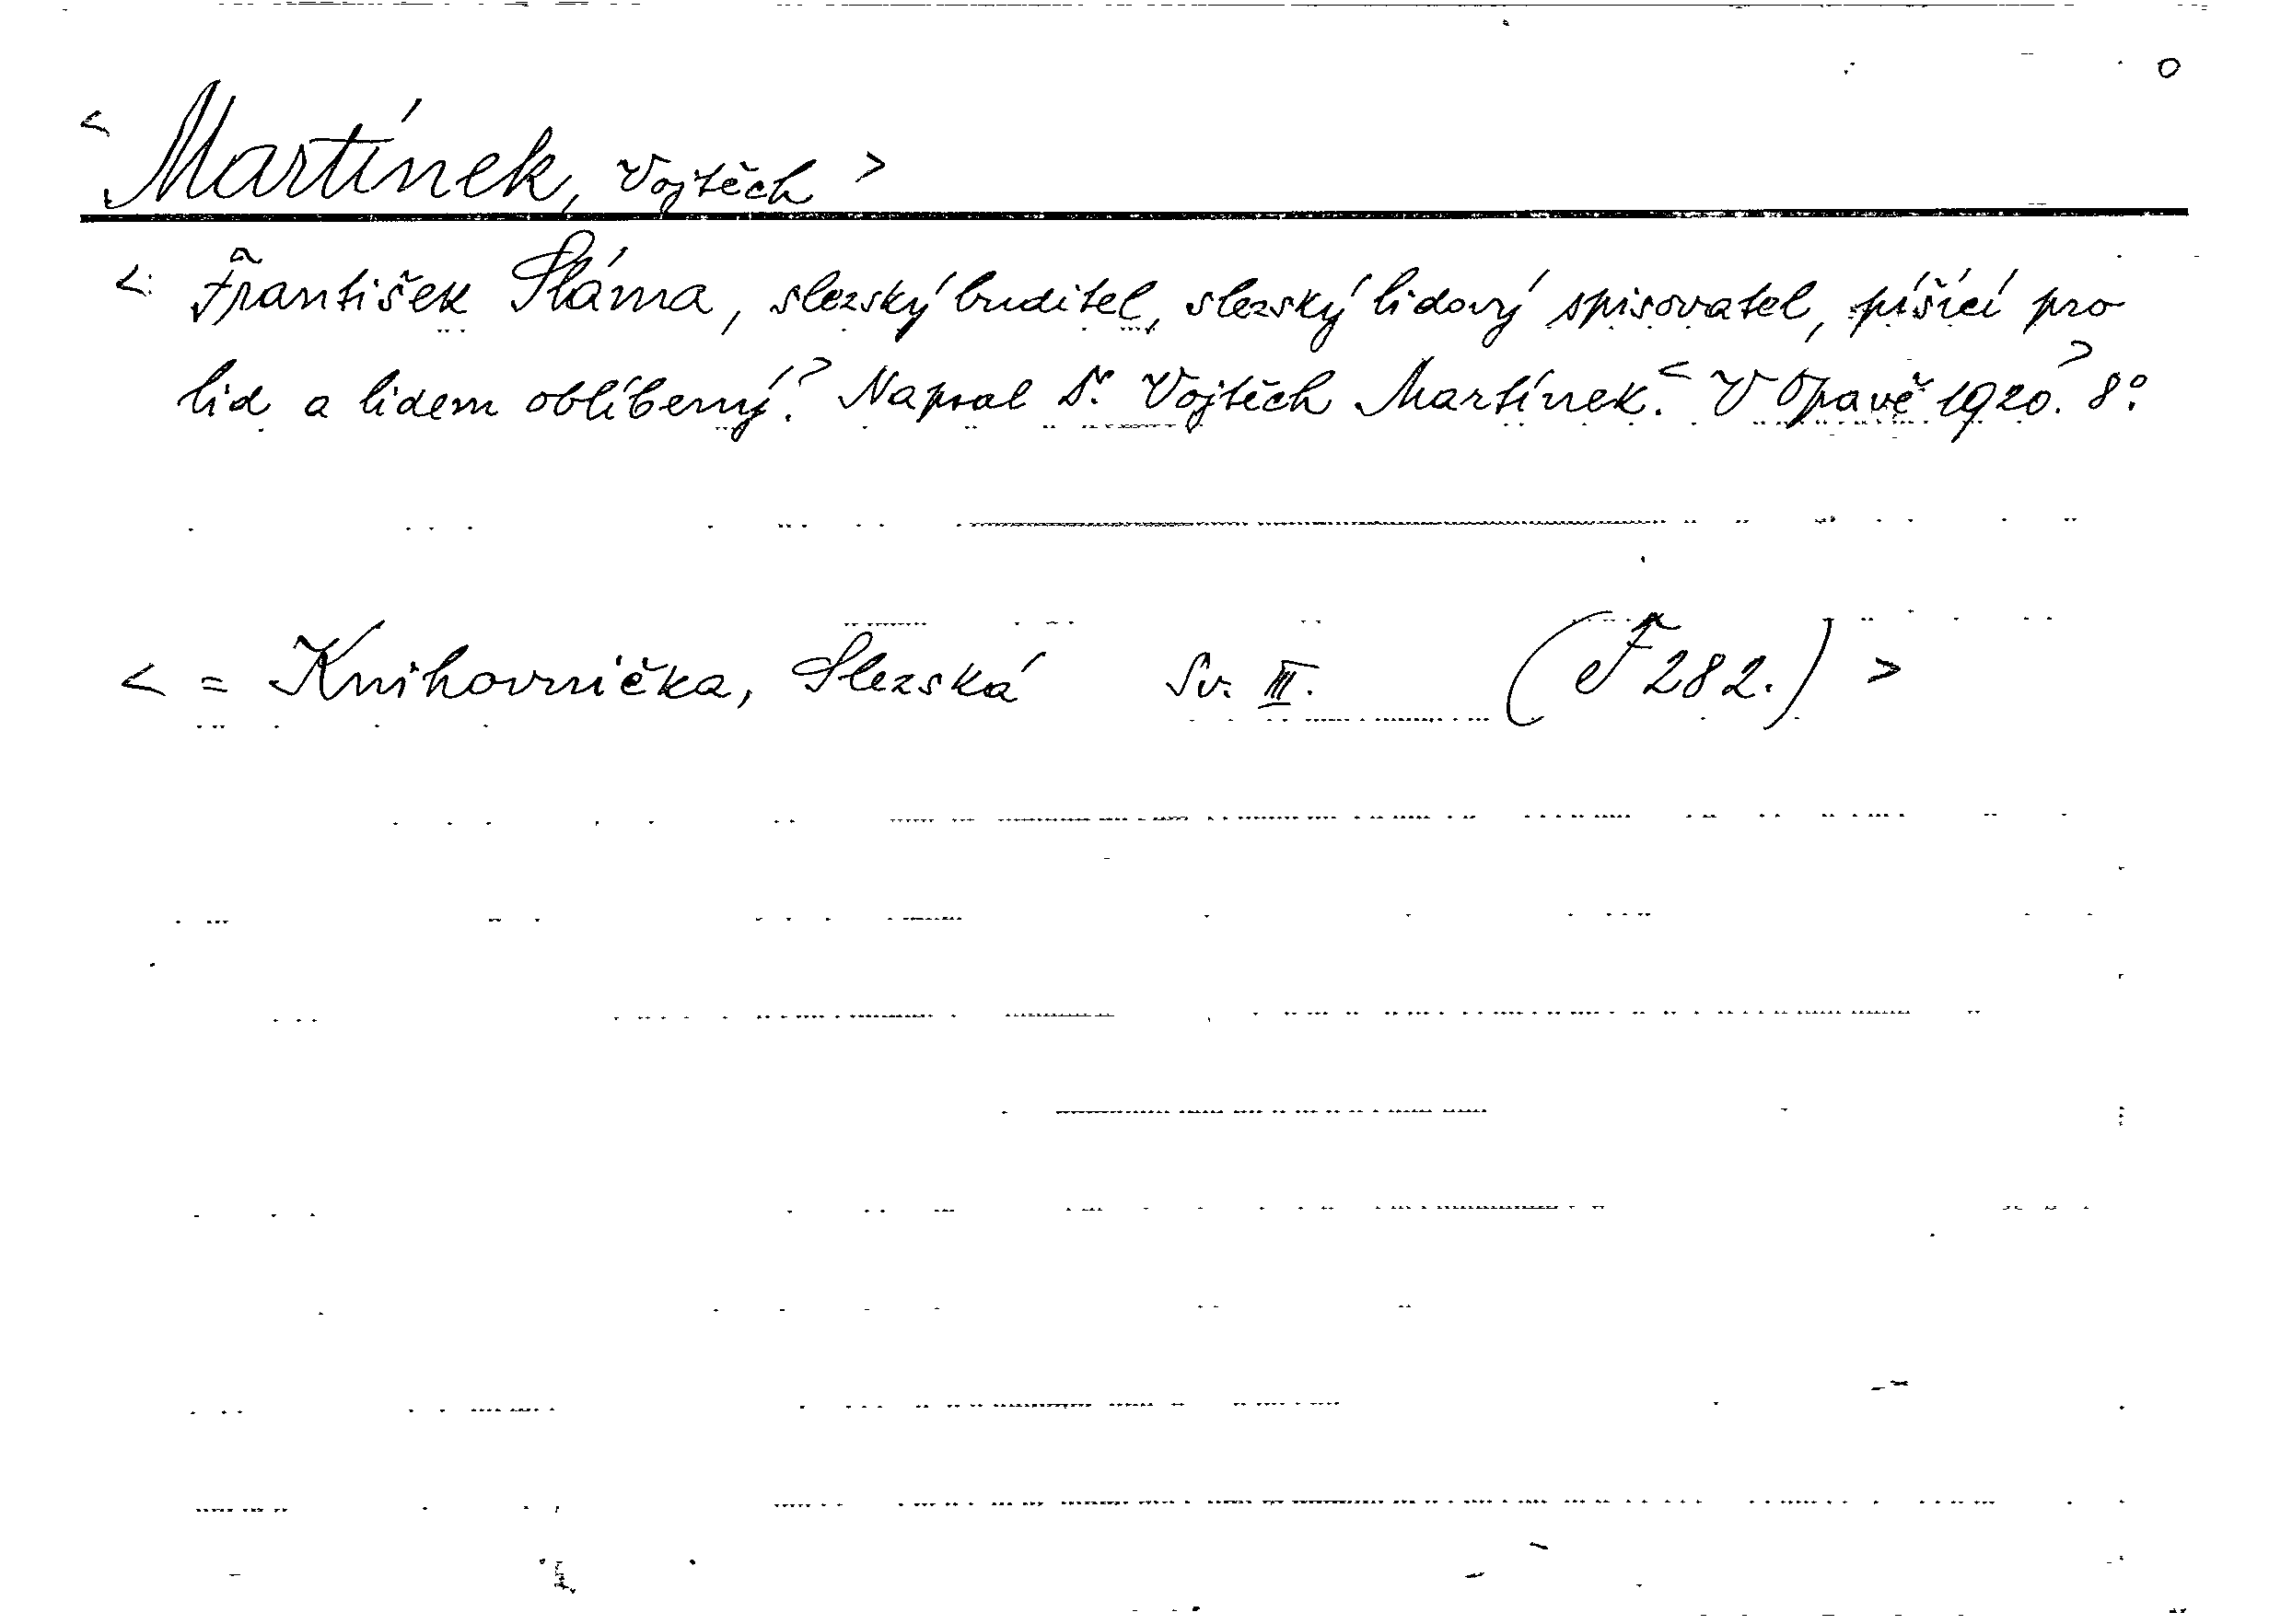 o
< Martínek, Vojtěch >
< František Sláma, slezský buditel, slezský lidový spisovatel, píšící pro
lid a lidem oblíbený.> Napsal Dr. Vojtěch Martínek.< V Opavě 1920.> 8º.
< = Knihovnička, Slezská Sv. III. (F 282.) >